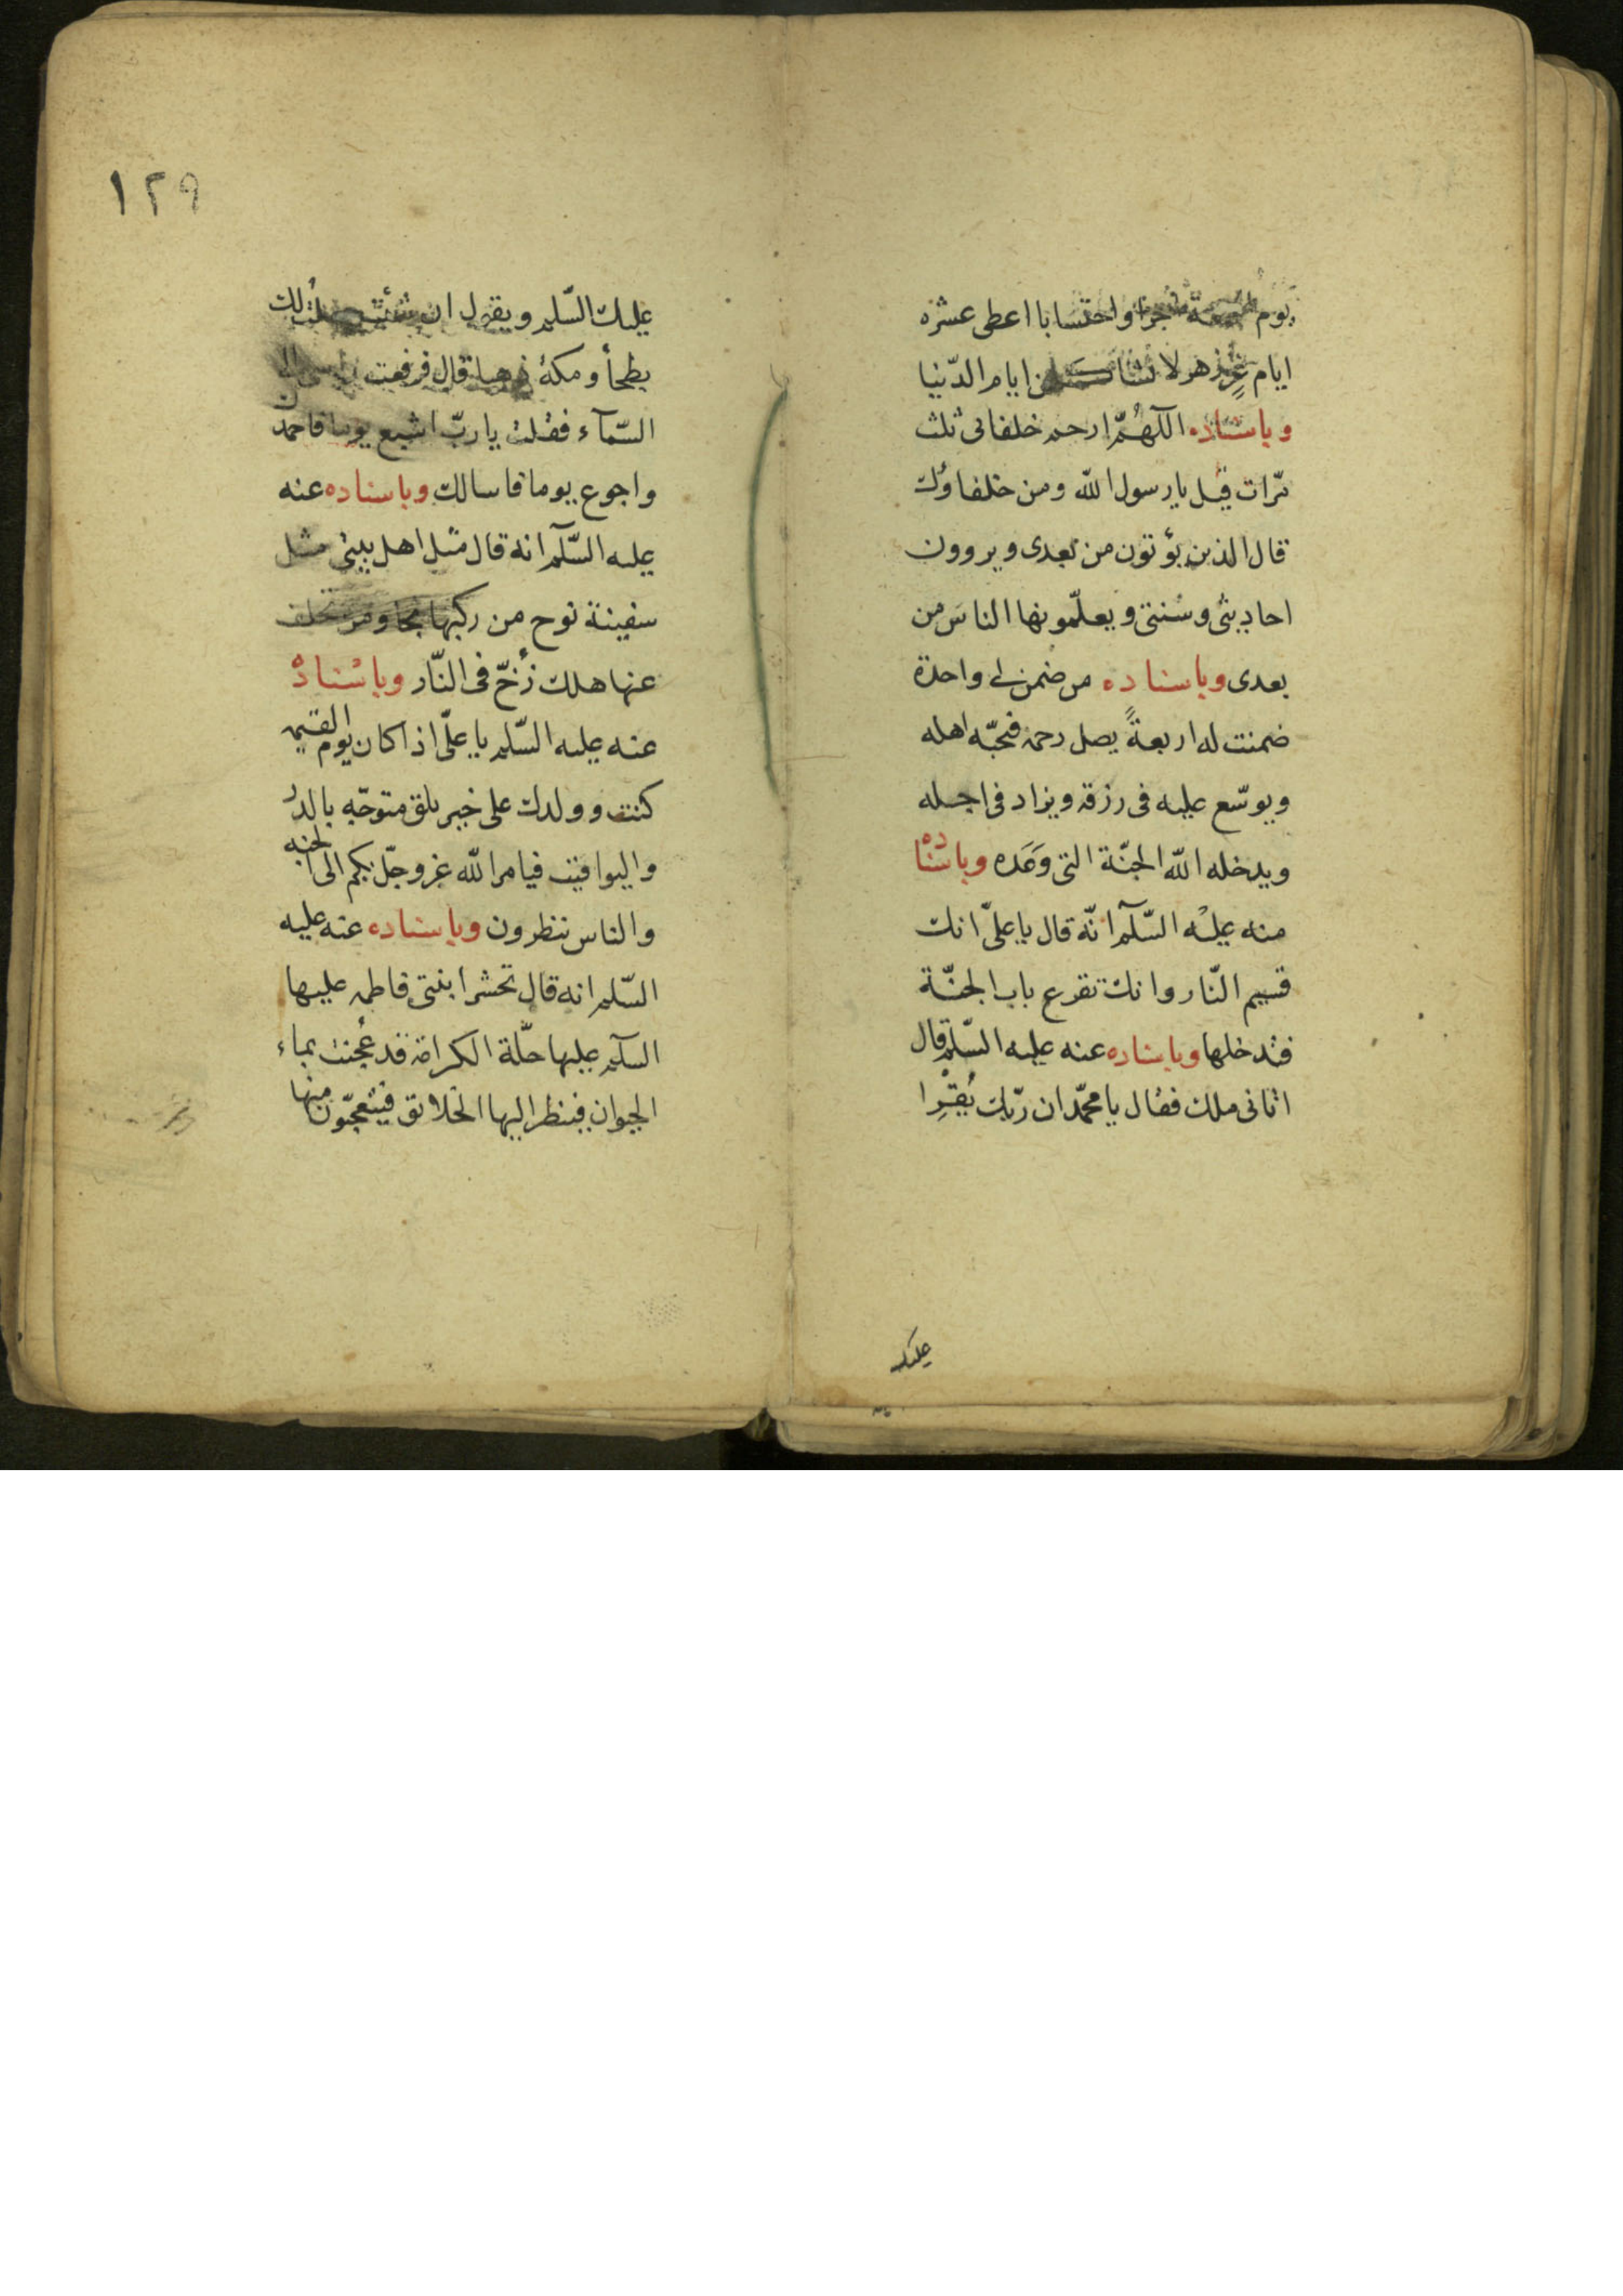 يوم الجمعة صبرا واحتسابا اعطى عشره
ايام غرّ زهر لا تشاكلهن ايام الدّنيا
وباسناده اللّهُمّ ارحم خلفائى ثلث
مرّات قيل يا رسول الله ومن خلفاؤك
قال الذين يؤتون من بعدى ويروون
احاديثى وسُنتى ويعلّمونها الناسَ من
بعدى وباسناده من ضمن لى واحدة
ضمنت له اربعةً يصل رحمه فيحبّه اهله
ويوسّع عليه فى رزقه ويزاد فى اجله
ويدخله الله الجنّة التى وَعَده وباسناده
منه عليْه السّلآم انّه قال يا علىّ انك
قسيم النّار وانك تقرع باب الجنّة
فتدخلها وباسناده عنه عليه السّلم قال
اتانى ملك فقال يا محمّد ان ربّك يُقرِا
عليك
١٢٩
عليك السّلم ويقول ان شئت جعلتُ لك
بطحأ ومكة ذهبا قال فرفعت راسى الى
السّمآء فقلت يا ربّ اشبع يوما فاحمدك
واجوع يوما فاسالك وباسناده عنه
عليه السّلآم انه قال مثل اهل بيتى مثل
سفينة نوح من ركبها نجا ومن تخلف
عنها هلك زُخّ فى النّار وباسْنادهْ
عنه عليه السّلم يا علىّ اذا كان يوم القيمه
كنت وولدك على خيل بلق متوجّه بالدُر
واليواقيت فيامر الله عزوجلّ بكم الى الجنه
والناس ينظرون وباسناده عنه عليه
السّلم انه قال تحشر ابنتى فاطمه عليها
السلآم عليها حلّة الكرامة قد عُجنت بماء
الحيوان فينظر اليها الخلائق فيتعجّبون منها